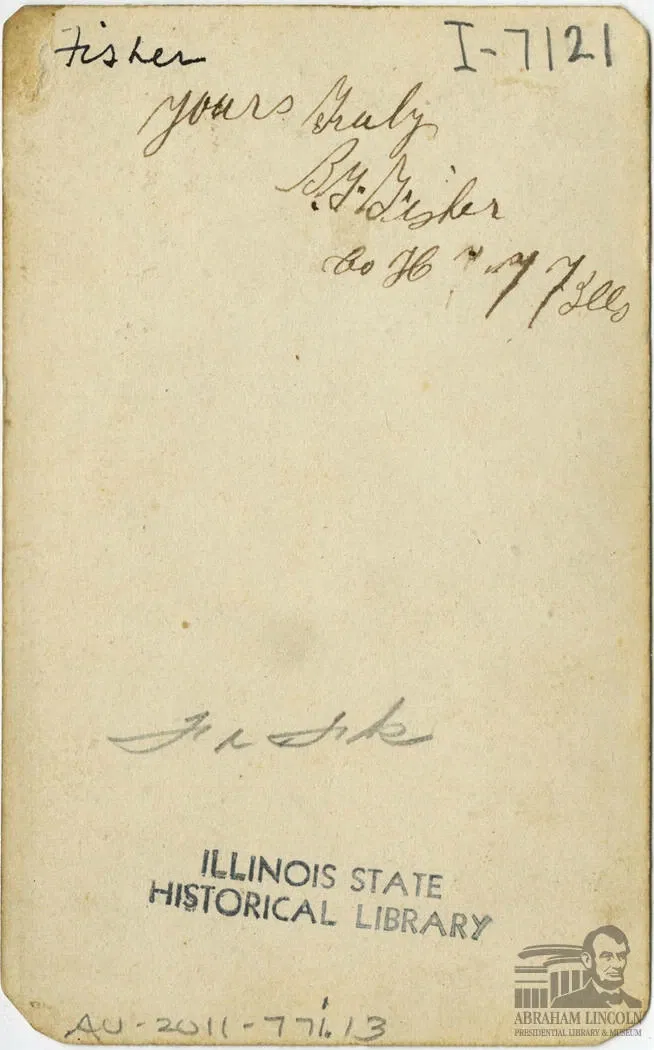 Fisher
I-7121
yours Truly
B.F. Fisher
Co H 77 Ills
ILLINOIS STATE
HISTORICAL LIBRARY
ABRAHAM LINCOLN
PRESIDENTIAL LIBRARY & MUSEUM
AU-2011-771.13